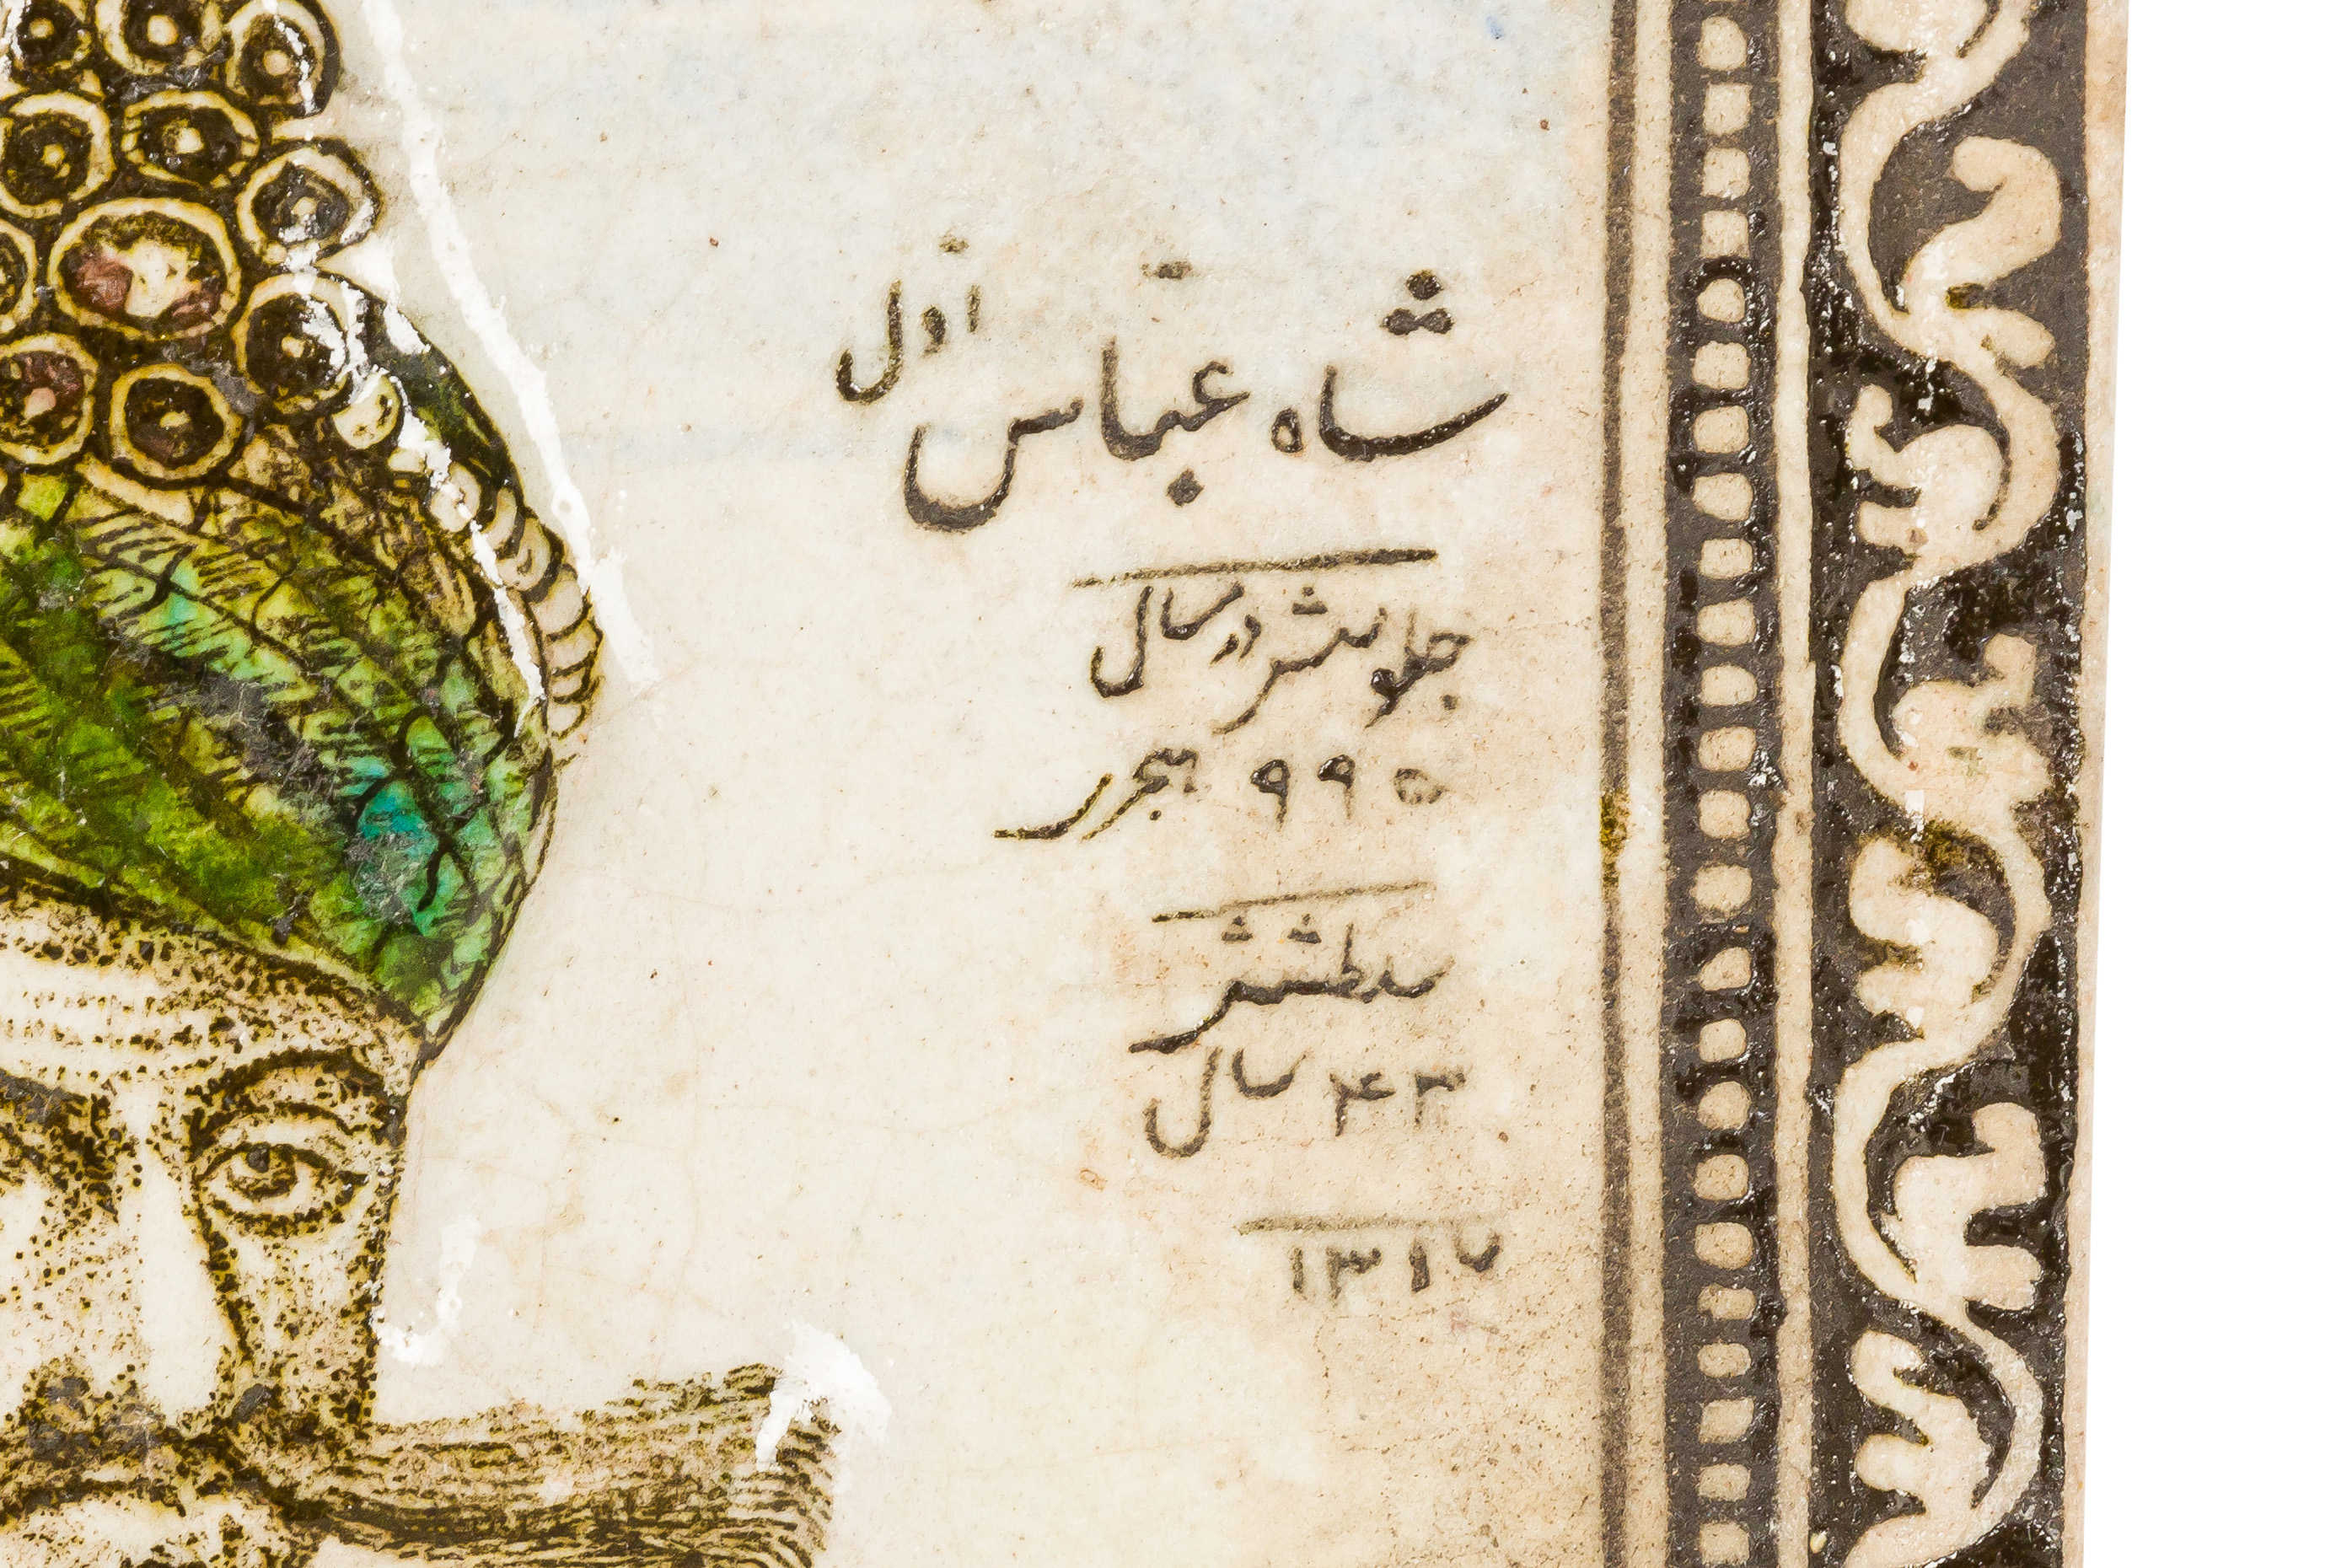 شاه عبّاس اوّل
جلوسش در سال
۹۹۵ هجری
سلطنتش
۴۳ سال
۱۳۱۷